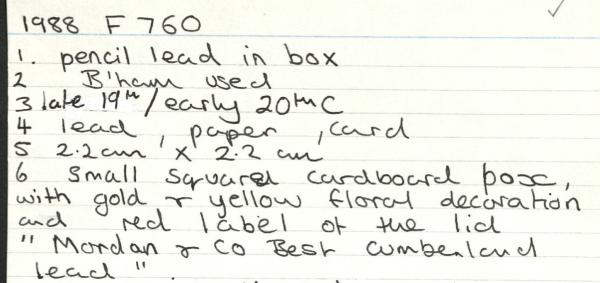 1988 F 760
1. pencil lead in box
2 B'ham used
3 late 19th/early 20thC
4 lead, paper, card
5 2.2cm x 2.2 cm
6 Small square cardboard box,
with gold & yellow floral decoration
and red label of the lid
"Mordan & Co Best Cumberland
lead".